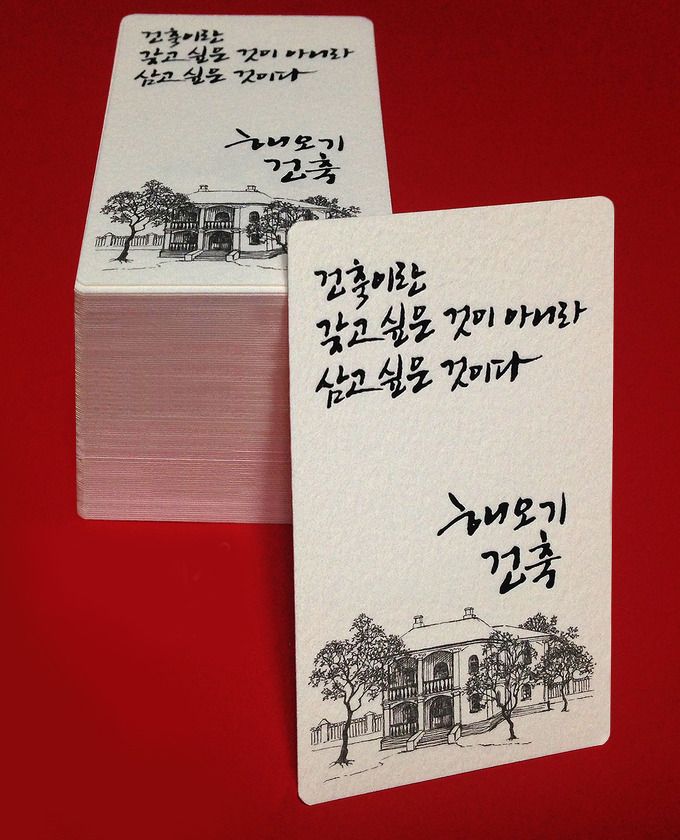 건축이란
갖고 싶은 것이 아니라
살고 싶은 것이다
해오기
건축
건축이란
갖고 싶은 것이 아니라
살고 싶은 것이다
해오기
건축